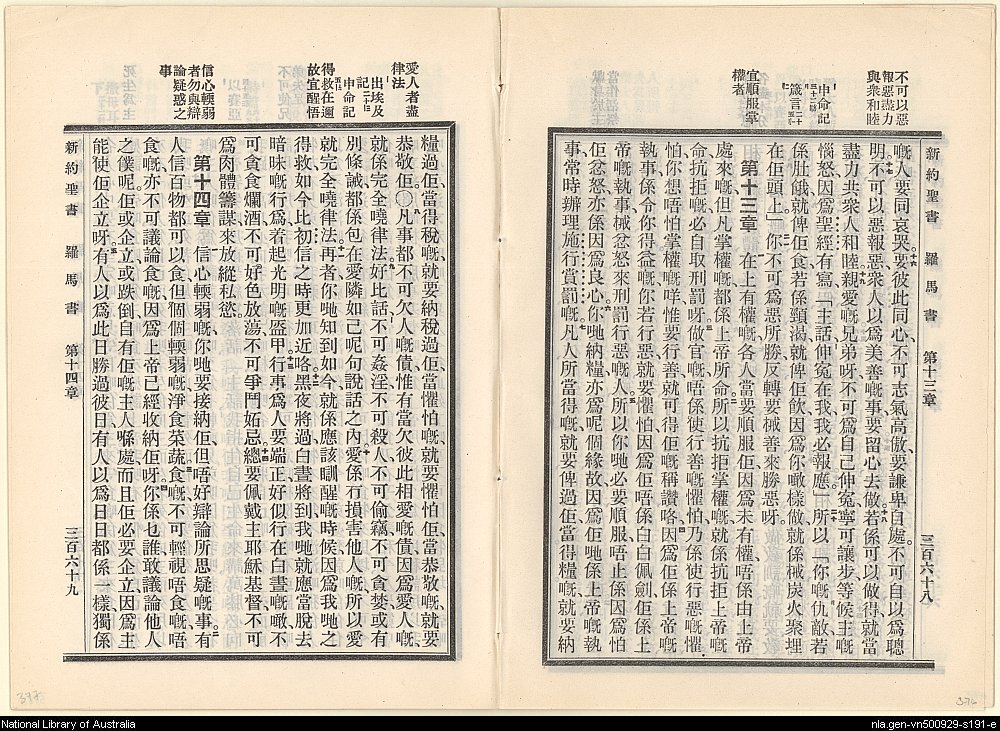 新約聖書　羅馬書　第十三章　三百六十八
不可以惡
報惡盡力
與衆和睦
申命記
箴言
宜順服掌
權者
嘅人要同哀哭要彼此同心不可志氣高傲要謙卑自處不可自以爲聰
明不可以惡報惡衆人以爲美善嘅事要留心去做若係可以做得就當
盡力共衆人和睦親愛嘅兄弟呀不可爲自己伸冤寧可讓步等候主嘅
惱怒因爲聖經有寫「主話伸冤在我我必報應」所以「你嘅仇敵若
係肚餓就俾佢食若係頸渴就俾佢飲因爲你噉樣做就係械炭火聚埋
在佢頭上」你不可爲惡所勝反轉要械善來勝惡呀
第十三章　在上有權嘅各人當要順服佢因爲未有權唔係由上帝
處來嘅但凡掌權嘅都係上帝所命所以抗拒掌權嘅就係抗拒上帝嘅
命抗拒嘅必自取刑罰呀做官嘅唔係使行善嘅懼怕乃係使行惡嘅懼
怕你想唔怕掌權嘅咩惟要行善就可得佢嘅稱讚咯因爲佢係上帝嘅
執事係令你得益嘅你若行惡就要懼怕因爲佢唔係白白佩劍佢係上
帝嘅執事械忿怒來刑罰行惡嘅人所以你哋必要順服唔止係因爲怕
佢忿怒亦係因爲良心你哋納糧亦爲呢個緣故因爲佢哋係上帝嘅執
事常時辦理施行賞罰嘅凡人所當得嘅就要俾過佢當得糧嘅就要納
糧過佢當得稅嘅就要納稅過佢當懼怕嘅就要懼怕佢當恭敬嘅就要
恭敬佢〇凡事都不可欠人嘅債惟有當欠彼此相愛嘅債因爲愛人嘅
就係完全嘵律法好比話不可姦淫不可殺人不可偷竊不可貪婪或有
別條誡都係包在愛隣如己呢句說話之內愛係冇損害他人嘅所以愛
就完全嘵律法再者你哋知到如今就係應該瞓醒嘅時候因爲我哋之
得救如今比初信之時更加近咯黑夜將過白晝將到我哋就應當脫去
暗昧嘅行爲着起光明嘅盔甲行事爲人要端正好似行在白晝嘅噉不
可貪食爛酒不可好色放蕩不可爭鬥妬忌總要佩戴主耶穌基督不可
爲肉體籌謀來放縱私慾
第十四章　信心輭弱嘅你哋要接納佢但唔好辯論所思疑嘅事有
人信百物都可以食但個個輭弱嘅淨食菜蔬食嘅不可輕視唔食嘅唔
食嘅亦不可議論食嘅因爲上帝已經收納佢呀你係也誰敢議論他人
之僕呢佢或企立或跌倒自有佢嘅主人喺處而且佢必要企立因爲主
能使佢企立呀有人以爲此日勝過彼日有人以爲日日都係一樣獨係
愛人者盡
律法
出埃及
記
申命記
得救在邇
故宜醒悟
信心輭弱
者勿與辯
論疑惑之
事
新約聖書　羅馬書　第十四章　三百六十九
National Library of Australia
nla.gen-vn500929-s191-e